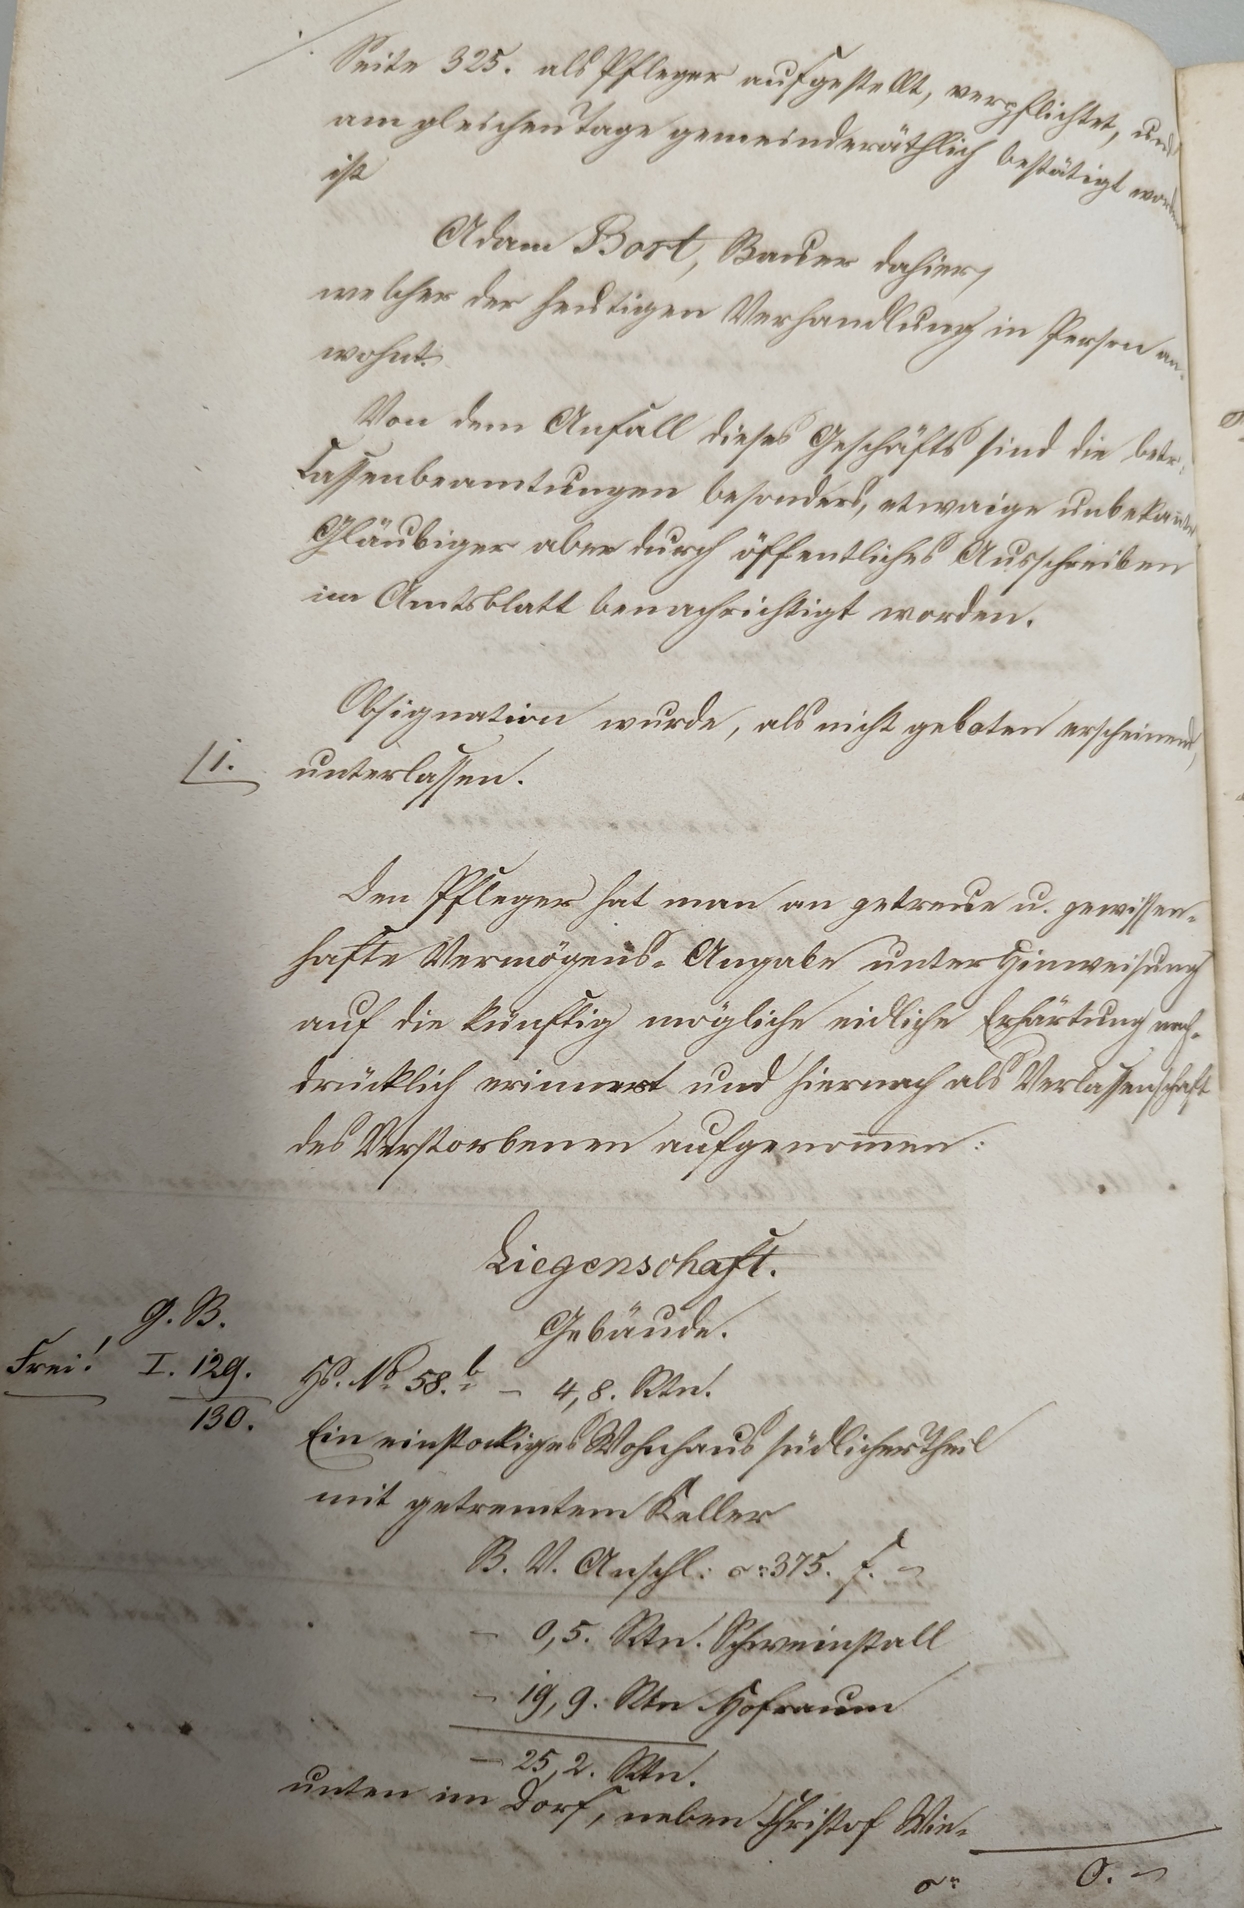 Seite 325. als Pfleger aufgestellt, verpflichtet, und
am gleichen Tage gemeinderäthlich bestätigt worden
ist
Adam Bort, Bauer dahier,
welcher der heutigen Verhandlung in Person an-
wohnt.
Von dem Anfall dieses Geschäfts sind die betr.
Cassenbeamtungen besonders, etwaige unbekannte
Gläubiger aber durch öffentliches Ausschreiben
im Amtsblatt benachrichtigt worden.
Obsignation wurde, als nicht geboten erscheinend,
1. unterlassen.
Den Pfleger hat man an getreue u. gewissen-
hafte Vermögens-Angabe unter Hinweisung
auf die künftig mögliche eidliche Erhärtung nach-
drücklich erinnert und hiernach als Verlassenschaft
des Verstorbenen aufgenommen:
Liegenschaft.
G. B. Gebäude.
Frei! I. 129. Hs. No. 58.b - 4,8. Rtn.
130. Ein einstockiges Wohnhaus südlicher Theil
mit getremtem Keller
B. V. Anschl: 375. f. -
- 0,5. Rtn. Schweinstall
- 19,9. Rtn Hofraum
- 25,2. Rtn.
unten im Dorf, neben Christof Wie-
0. -